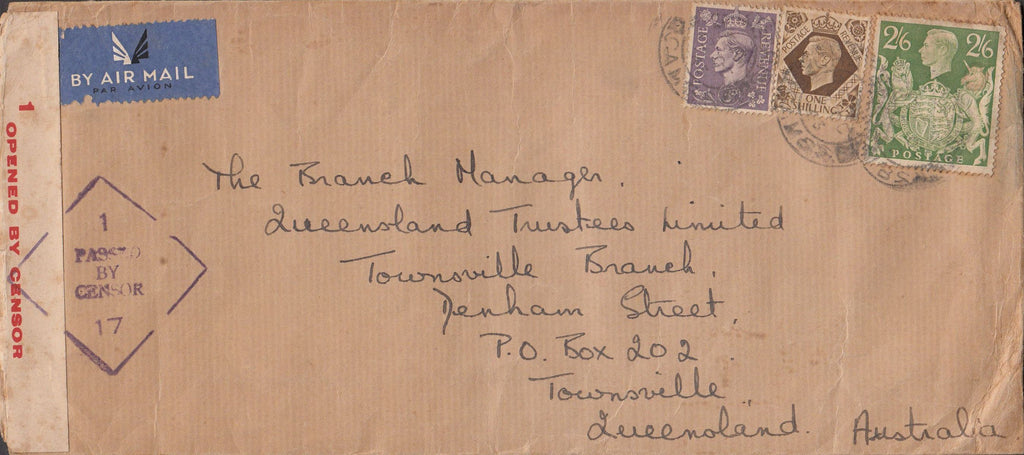 BY AIR MAIL
PAR AVION
1 OPENED BY CENSOR
1
PASSED
BY
CENSOR
17
POSTAGE REVENUE
POSTAGE REVENUE
ONE
SHILLING
2/6 2/6
POSTAGE
The Branch Manager.
Queensland Trustees Limited
Townsville Branch.
Denham Street.
P.O. Box 202.
Townsville
Queensland. Australia